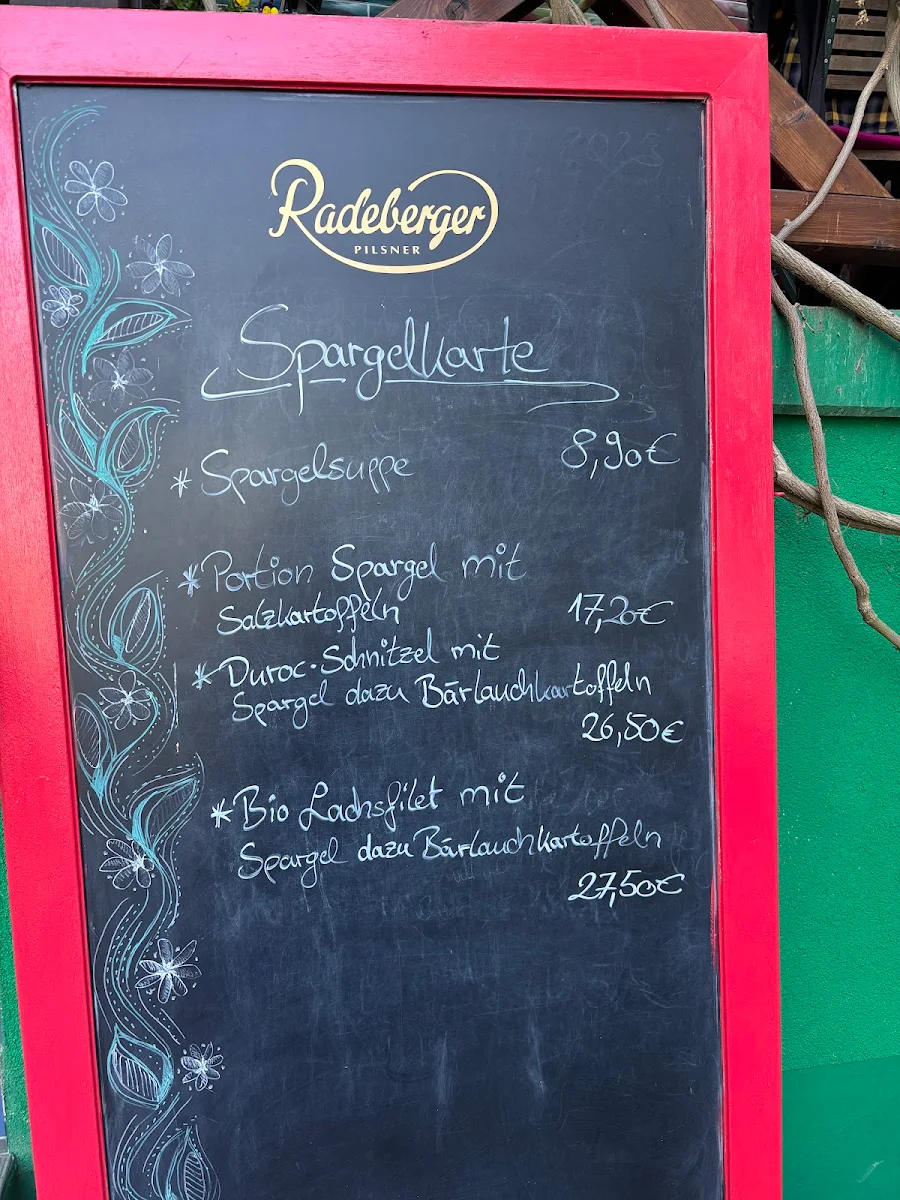 Radeberger
PILSNER
Spargelkarte
* Spargelsuppe 8,90€
* Portion Spargel mit
Salzkartoffeln 17,20€
* Duroc-Schnitzel mit
Spargel dazu Bärlauchkartoffeln
26,50€
* Bio Lachsfilet mit
Spargel dazu Bärlauchkartoffeln
27,50€